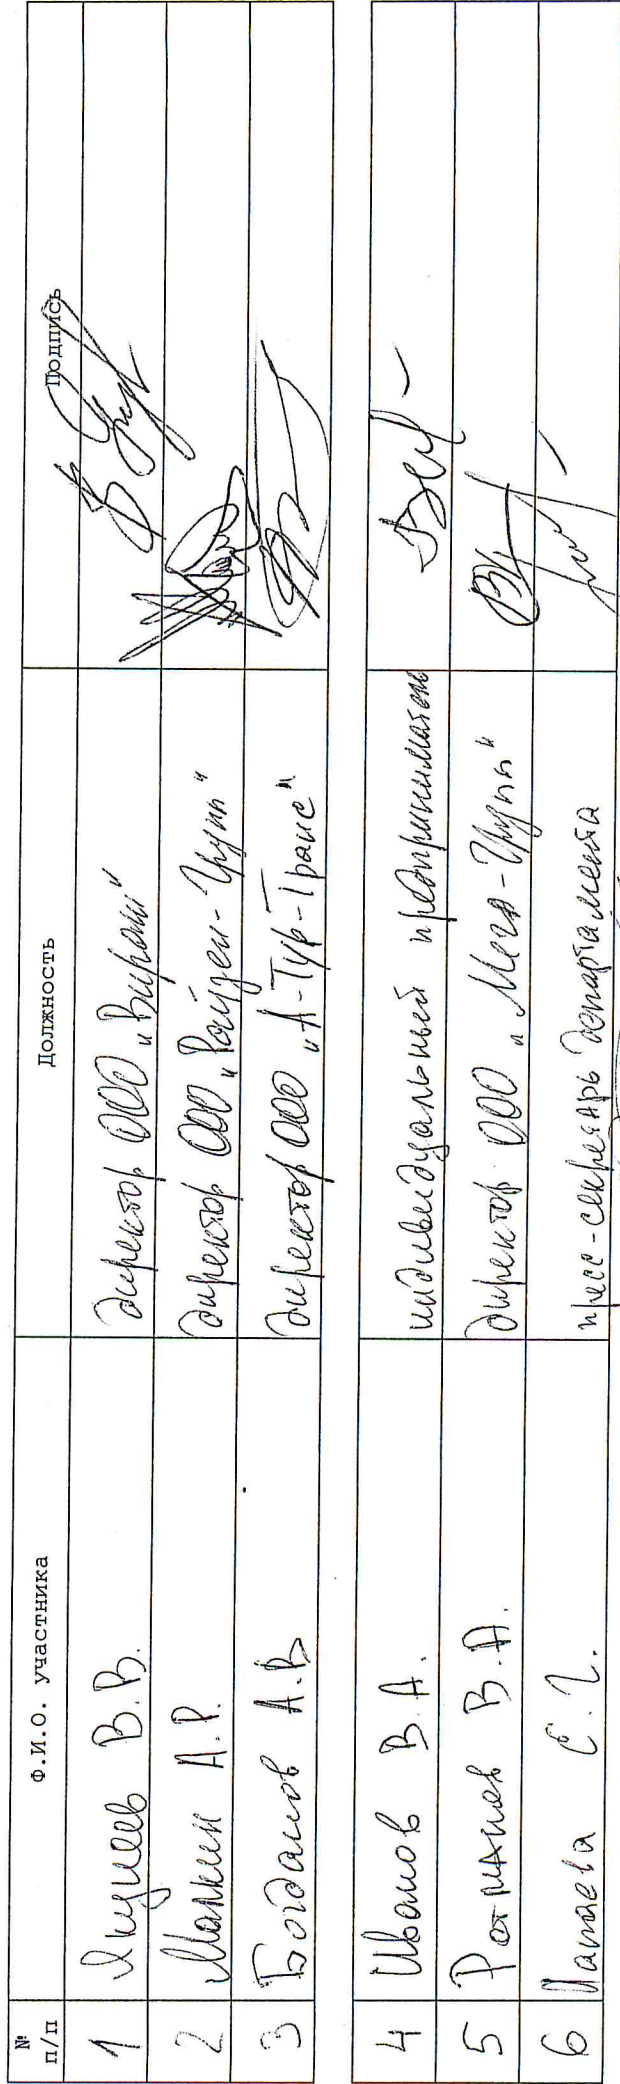 № п/п Ф.И.О. участника Должность Подпись
1 Якунеев В.В. директор ООО „Вираж"
2 Малкин А.Р. директор ООО „Райзен-Групп"
3 Богданов А.В директор ООО „А-Тур-Транс"
4 Иванов В.А. индивидуальный предприниматель
5 Ротманов В.А. директор ООО „Мега-Групп"
6 Папаева С.Г. пресс-секретарь департамента